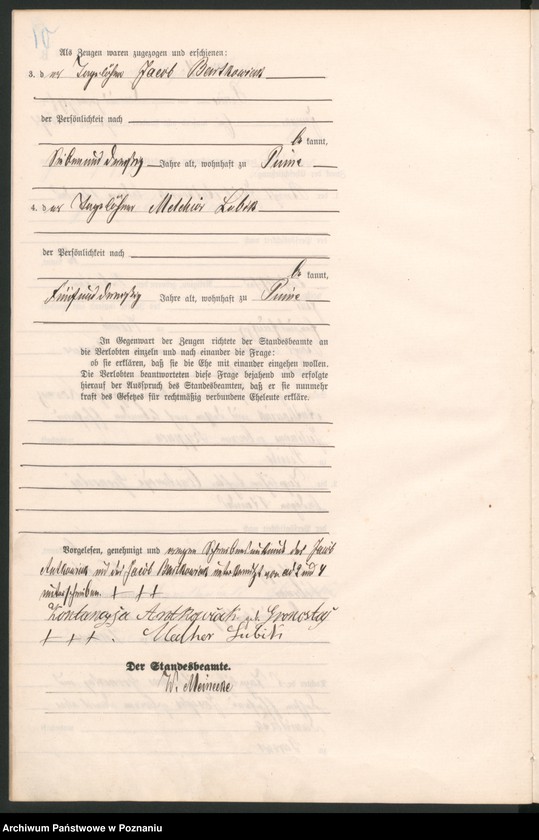 Als Zeugen waren zugezogen und erschienen:
3. d er Tagelöhner Jacob Bartkowiak
der Persönlichkeit nach
be kannt,
Siebenunddreißig Jahre alt, wohnhaft zu
4. d er Tagelöhner Melchior Lubik
der Persönlichkeit nach
be kannt,
Jahre alt, wohnhaft zu
In Gegenwart der Zeugen richtete der Standesbeamte an
die Verlobten einzeln und nach einander die Frage:
ob sie erklären, daß sie die Ehe mit einander eingehen wollen.
Die Verlobten beantworteten diese Frage bejahend und erfolgte
hierauf der Ausspruch des Standesbeamten, daß er sie nunmehr
kraft des Gesetzes für rechtmäßig verbundene Eheleute erkläre.
Vorgelesen, genehmigt und wegen Schreibensunkunde des Jacob
Antkowiak und des Jacob Bartkowiak unterkreuzt von ad 2 und 4
unterschrieben. + + +
Konstancyja Antkowiak g.b. Gronostaj
+ + +. Melher Lubik
Der Standesbeamte.
W. Meinecke
Archiwum Państwowe w Poznaniu